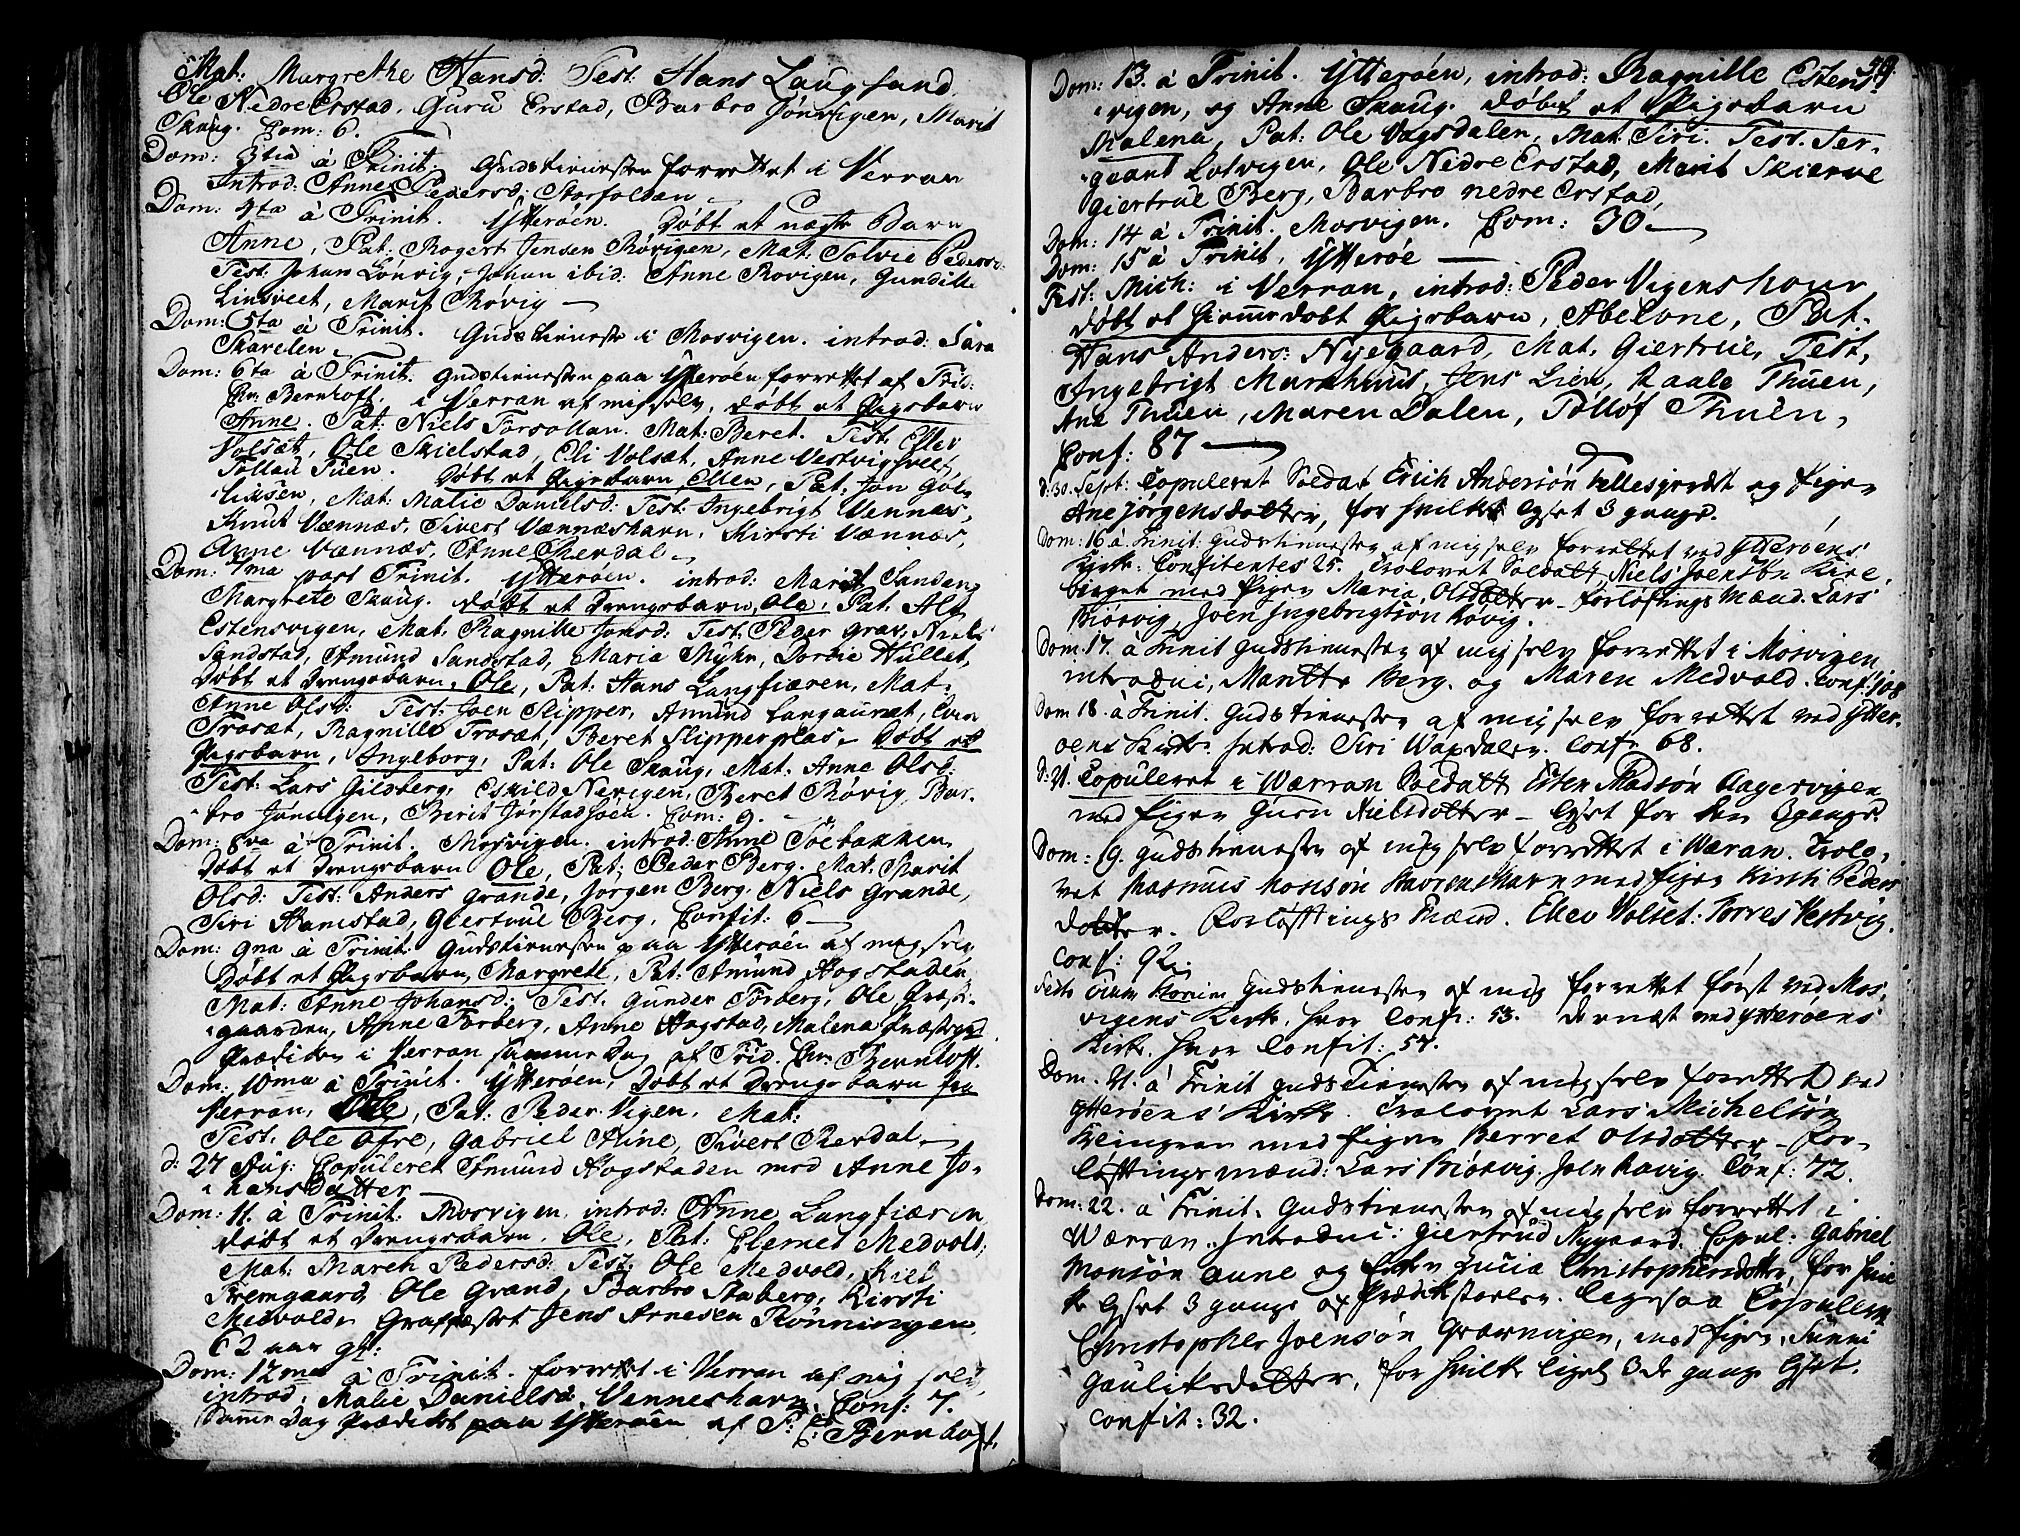 Mat: Margrethe Hansd: Test: Hans Laugsand
Ole Nedre Erstad, Guru Erstad, Barbro Jønvigen, Marit
Skaug. Com: 6.
Dom: 3tia à Trinit. Gudstienesten forrettet i Verran
Introd: Anne Pedersd: Storfolden
Dom: 4ta à Trinit. Ytterøen. Døbt et Barn
Anne, Pat: Rogert Jensen Røvigen, Mat: Solvie Peders:
Test: Johan Lønvig, Johan ibid: Anne Røvigen, Gundille
Linsveet, Marit Røvig
Dom: 5ta à Trinit. Gudstieneste i Mosvigen. introd: Sara
Skavelen
Dom: 6ta à Trinit. Gudstienesten paa Ytterøen forrettet af
Bernhoft. i Verran af mig selv, døbt et Pigebarn
Anne. Pat: Niels Forsollan. Mat: Beret. Test: Eller
Volsæt, Ole Skielstad, Eli Volsæt, Anne Vestvig
Tollau Tuen. Døbt et Pigebarn Ellen, Pat: Jon
Mat: Malie Danielsd: Test: Ingebrigt Vennæs,
Knut Vænnæs, Sivert Vænnæshavn, Kirsti Vænnæs,
Anne Vænnæs, Anne Rerdal
Dom: 7ma post Trinit. Ytterøen. introd: Marit Sandan
Margrete Skaug. Døbt et Drengebarn, Ole, Pat: Alf
Estensvigen, Mat: Ragnille Jonsd: Test: Peder Grav, Niels
Sandstad, Amund Sandstad, Maria Myhr, Dordie Hullet,
Døbt et Drengebarn, Ole, Pat: Hans Langfiæren, Mat:
Anne Olsd: Test: Joen Slipper, Amund Langaunet,
Trosæt, Ragnille Trosæt, Beret Slipperplas. Døbt et
Pigebarn, Ingeborg, Pat: Ole Skaug, Mat: Anne Olsd:
Test: Lars Gildberg, Eskild Nevigen, Beret Røvig, Bar-
bro Jønvigen, Berit Jørstadsøen. Com: 9.
Dom: 8va à Trinit. Mosvigen. introd: Anne Soebakken
Døbt et Drengebarn Ole, Pat: Peder Berg. Mat: Marit
Olsd: Test: Anders Grande, Jørgen Berg, Niels Grande,
Siri Hamstad, Giertrue Berg, Confit: 6
Dom: 9na à Trinit. Gudstienesten paa Ytterøen af mig selv
Døbt et Pigebarn, Margrete, Pat: Amund Hogstaden
Mat: Anne Johansd: Test. Gunder Forberg, Ole Præst-
gaarden, Anne Forberg, Anne Hogstad, Malena Præstegrd
Prædiken i Verran samme Dag af Hr. Bernhoft.
Dom: 10ma à Trinit. Ytterøen, Døbt et Drengebarn fra
Verran, Ole, Pat: Peder Vigen, Mat:
Test: Ole Ofre, Gabriel Aune, Sivert Rerdal
d: 27 Aug: Copuleret Amund Hogstaden med Anne Jo-
hansdatter
Dom: 11. à Trinit: Mosvigen. introd: Anne Langfiæren
Døbt et Drengebarn, Ole, Pat: Clemet Medvold,
Mat: Mareh Pedersd: Test. Ole Medvold, Kiel
Fremgaard, Ole Grand, Barbro Staberg, Kirsti
Medvold. Graffæstet Jens Arnesen Rønningen
62 aar gl:
Dom: 12ma à Trinit. forrettet i Verran af mig selv,
introd: Malie Danielsd: Venneshavn. Conf: 7.
Samme Dag Prædiket paa Ytterøen af Bernhoft.
Dom: 13. à Trinit. Ytterøen, introd: Ragnille Estens-
vigen, og Anne Skaug. døbt et Pigebarn
Malena, Pat: Ole Vagsdalen, Mat: Siri. Test. Ser-
geant Lotvigen, Ole Nedre Erstad, Marit Skierve
Giertrue Berg, Barbro nedre Erstad,
Dom: 14 à Trinit. Mosvigen. Com: 30.
Dom: 15 à Trinit. Ytterøe
Fest: Mich: i Verran, introd: Peder Vigens koner
døbt et hiemmedøbt Pigebarn, Abelone, Pat.
Hans Anders: Nyegaard, Mat. Giertrue, Test,
Ingebrigt Markhuus, Jens Lien, Paale Thuen,
Ane Thuen, Maren Dalen, Tolløf Thuen,
Conf: 87
d: 30. Sept: Copuleret Soldat Erich Andersøn og Pigen
Ane Jörgensdotter, for hvilke lyset 3 gange.
Dom: 16 à Trinit: Gudstienesten af mig selv forrettet ved Ytterøens
Kirke. Confitentes 25. Trolovet Soldatt Niels Joensøn
med Pigen Maria, Olsdotter. Forlöftings Mænd. Lars
Biørvig, Joen Ingebrigtson Røvig.
Dom: 17. à Trinit Gudstienesten af mig selv forrettet i Mosvigen
introdui, Maritte Berg. og Maren Medvold. Conf: 108
Dom 18. à Trinit. Gudstienesten af mig selv forrettet ved Ytter-
øens Kirke. Introd: Siri Wagdalen. Conf: 68.
d: 21. Copuleret i Wærran Soldatt Esten Madsøn Aagervigen
med Pigen Guru Nielsdotter – lyset for dem 3 gange.
Dom: 19. Gudstienesten af mig selv forrettet i Wæran. Trolo-
vet Rasmus Monsøn med Pigen Kirsti Peders
dotter. Forløftings Mænd. Ellev Wolset: Torres Vestvig.
Conf: 92.
Gudstienesten af mig forrettet først ved Mos-
vigens Kirke, hvor Conf: 53. dernæst ved Ytterøens
Kirke. hvor Confit: 57.
Dom. 21. à Trinit Gudstienesten af mig selv forrettet ved
Ytterøens Kirke. Trolovet Lars Michelsøn
med Pigen Berret Olsdotter – For-
løftings mænd: Lars Biørvig. Joen Røvig. Conf: 72.
Dom: 22. à Trinit. Gudstienesten af mig selv forrettet i
Wærran. Introdui: Giertrud Nygaard. Copul: Gabriel
Monsøn Aune og Pigen Lucia Christophersdotter, for hvil-
ke lyset 3 gange af Prædikstolen. Ligesaa Copuleret
Christopher Joensøn Grønningen, med Pigen,
Gauliksdotter, for hvilke liget 3de gange lyset.
Confit: 32.